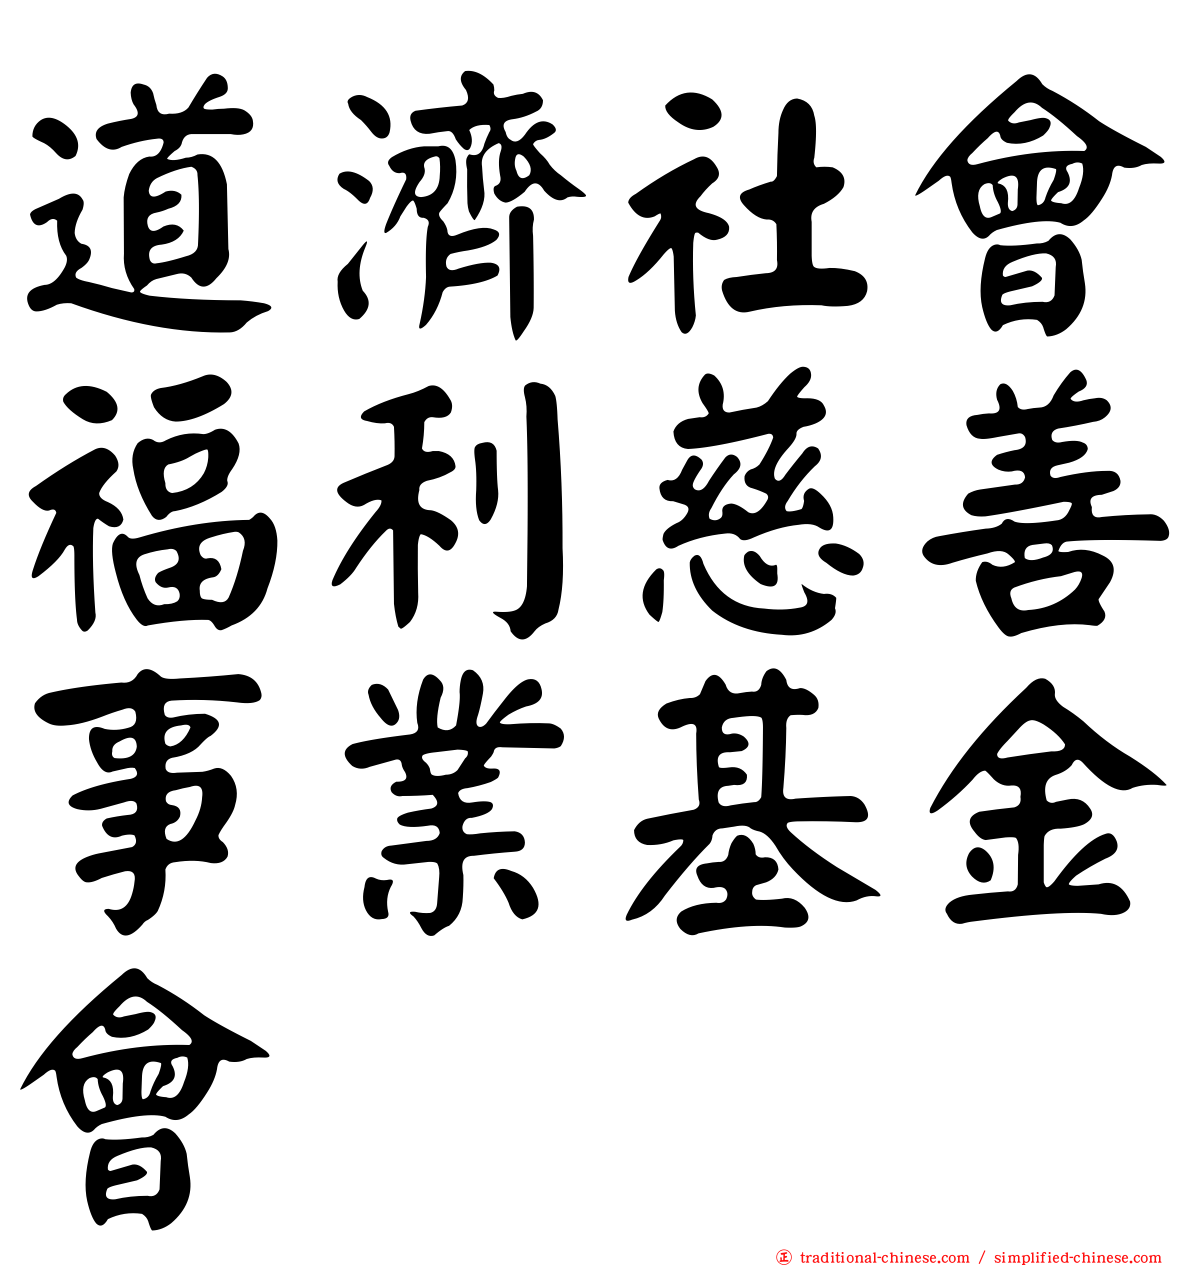 道濟社會
福利慈善
事業基金
會
正 traditional-chinese.com / simplified-chinese.com